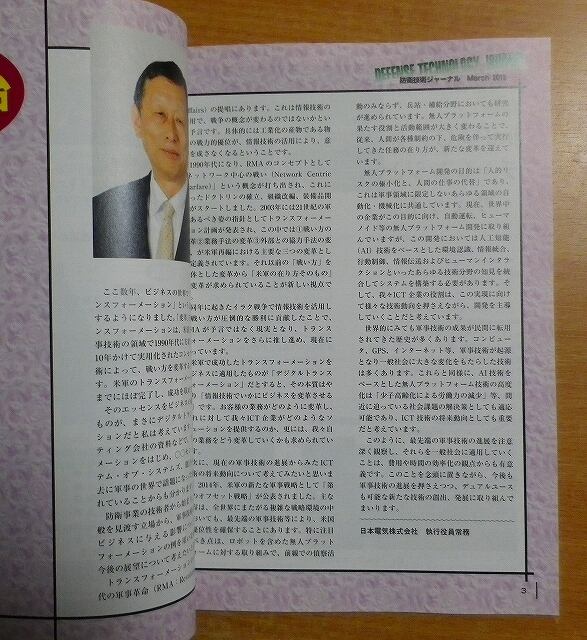 DEFENSE TECHNOLOGY JOURNAL
防衛技術ジャーナル March 2019
ffairs）の提唱にあります。これは情報技術の
用で、戦争の概念が変わるのではないかとい
予言です。具体的には工業化の産物である物
の戦力的優位が、情報技術の活用により、意
を成さなくなるということです。
1990年代になり、RMA のコンセプトとして
ネットワーク中心の戦い（Network Centric
arfare）」という概念が打ち出され、これに
ったドクトリンの確立、組織改編、装備品開
がスタートしました。2003年には21世紀の軍
あるべき姿の指針としてトランスフォーメー
ン計画が発表され、この中では①戦い方の
革②業務手法の変革③外部との協力手法の変
が、米軍再編における主要な三つの変革とし
定義されています。それ以前の「戦い方」を
体とした変革から「米軍の在り方そのもの」
変革が求められていることが新しい視点で
年に起きたイラク戦争で情報技術を活用し
戦い方が圧倒的な勝利に貢献したことで、
MA が予言ではなく現実となり、トランス
ォーメーションをさらに推し進め、現在に
っています。
米軍で成功したトランスフォーメーションを
ビジネスに適用したものが「デジタルトランス
ォーメーション」だとすると、その本質はや
り「情報技術でいかにビジネスを変革させる
です。お客様の業務がどのように変革し、
れに対して我々ICT企業がどのようなソ
ューションを提供するのか、更には、我々自
の業務をどう変革していくかも求められてい
す。
次に、現在の軍事技術の進展からみたICT
術の将来動向について考えてみたいと思いま
。2014年、米軍の新たな軍事戦略として「第
のオフセット戦略」が公表されました。主な
は、全世界にまたがる複雑な戦略環境の中
おいても、最先端の軍事技術等により、米国
優位性を確保することにあります。特に注目
べき点は、ロボットを含めた無人プラット
ームに対する取り組みで、前線での偵察活
ここ数年、ビジネスの世界で
ンスフォーメーション」と
するようになりました。「変革
ンスフォーメーションは、
事技術の領域で1990年代に
10年かけて実用化された
術によって、戦い方を変革
す。米軍のトランスフォー
までにほぼ完了し、成功を
そのエッセンスをビジネス
ものが、まさにデジタルト
ションだと私は考えています
ティング会社の資料などで
メーションをはじめ、〇〇
テム・オブ・システムズ、
去に軍事の世界で話題に
れていることからも分か
防衛事業の技術者から
般を見渡す立場から、軍事
ビジネスに与える影響に
フォーメーションの例を
今後の展望について考えた
トランスフォーメーション
代の軍事革命（RMA：Rev
動のみならず、兵站・補給分野においても研究
が進められています。無人プラットフォームの
果たす役割と活動範囲が大きく変わることで、
従来、人間が各種制約の下、危険を伴って実行
してきた任務の在り方が、新たな変革を迎えて
います。
無人プラットフォーム開発の目的は「人的リ
スクの極小化と、人間の仕事の代替」であり、
これは軍事領域に限定しないあらゆる領域の自
動化・機械化に共通しています。現在、世界中
の企業がこの目的に向け、自動運転、ヒューマ
ノイド等の無人プラットフォーム開発に取り組
んでいますが、この開発においては人工知能
（AI）技術をベースとした環境認識、情報統合、
行動制御、情報伝送およびヒューマンインタラ
クションといったあらゆる技術分野の知見を統
合してシステムを構築する必要があります。そ
して、我々ICT 企業の役割は、この実現に向け
て様々な技術動向を押さえながら、開発を主導
していくことだと考えています。
世界的にみても軍事技術の成果が民間に転用
されてきた歴史が多くあります。コンピュー
タ、GPS、インターネット等、軍事技術が起源
となり一般社会に大きな変化をもたらした技術
は多くあります。これらと同様に、AI 技術を
ベースとした無人プラットフォーム技術の高度
化は「少子高齢化による労働力の減少」等、間
近に迫っている社会課題の解決策としても適応
可能であり、ICT 技術の将来動向としても重要
だと考えています。
このように、最先端の軍事技術の進展を注意
深く観察し、それらを一般社会に適用していく
ことは、費用や時間の効率化の観点からも有意
義です。このことを念頭に置きながら、今後も
軍事技術の進展を押さえつつ、デュアルユース
も可能な新たな技術の創出、発展に取り組んで
まいります。
日本電気株式会社 執行役員常務
3